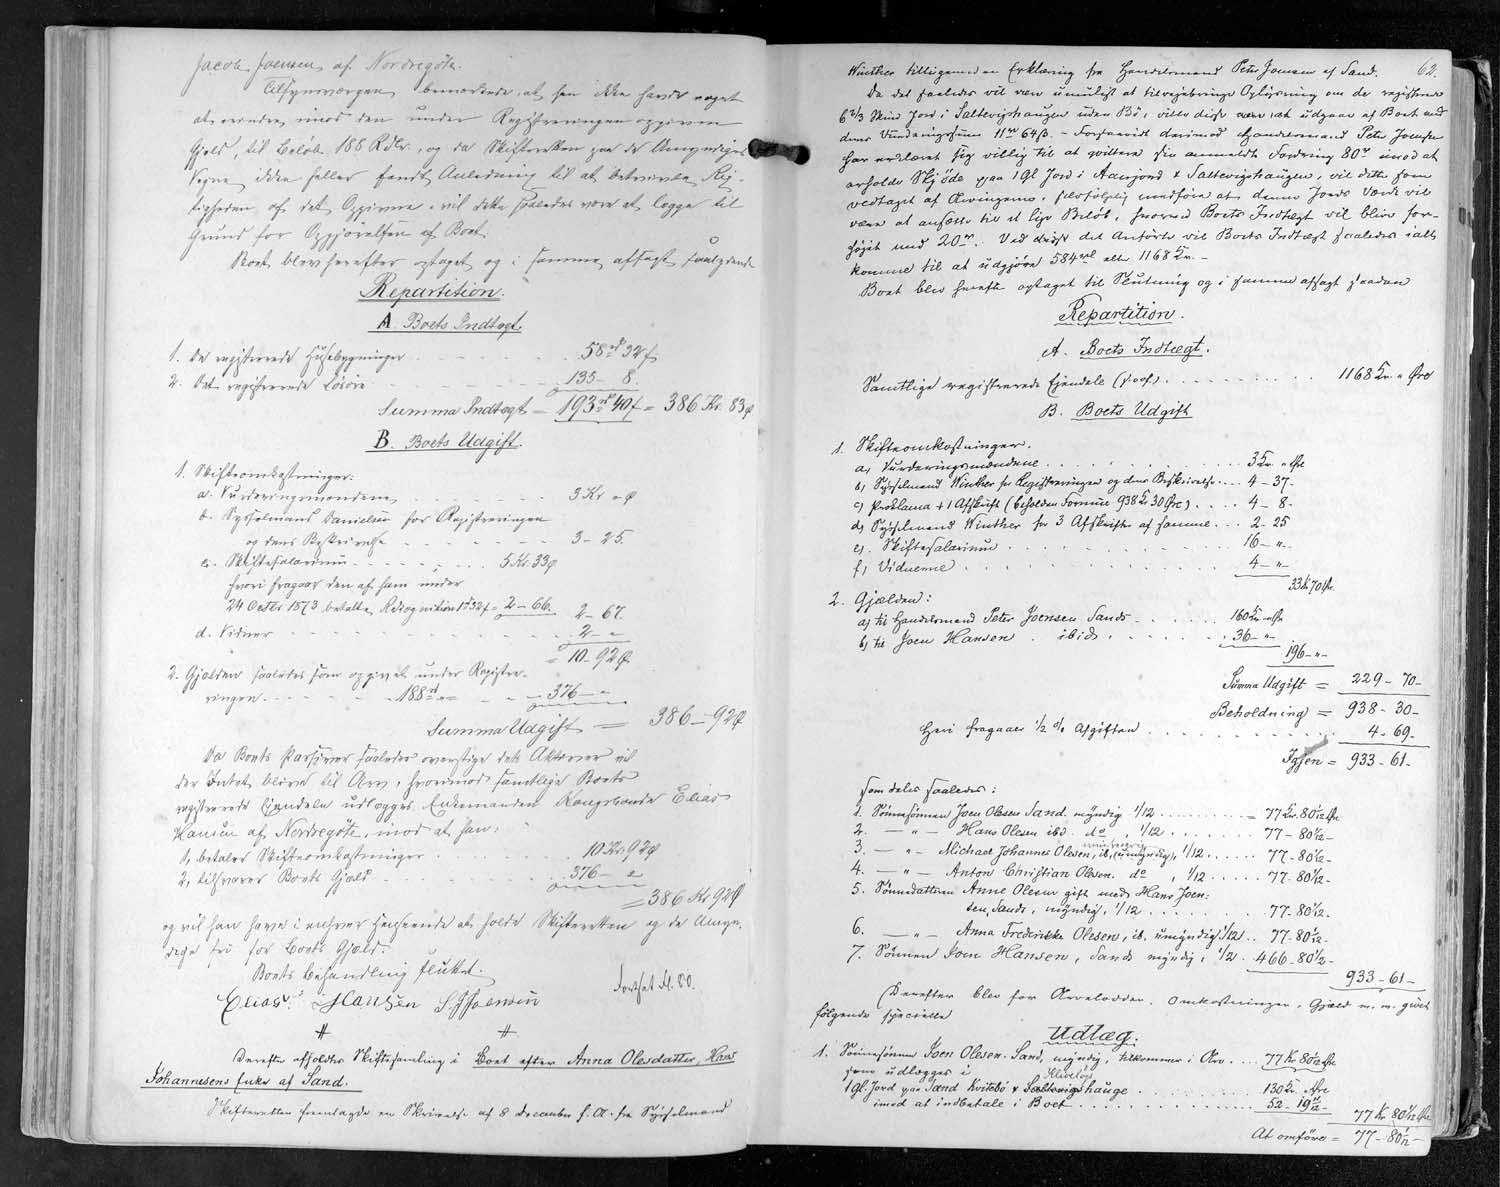 Jacob Joensen af Nordregöte.
Tilsynsværgen bemærkede, at han ikke havde noget
at erindre imod den under Registreringen opgivne
Gjæld, til Beløb 188 Rdlr., og da Skifteretten paa de Umyndiges
Vegne ikke heller fandt Anledning til at betvivle Rig-
tigheden af det Opgivne, vil dette saaledes være at lægge til
Grund for Opgjørelsen af Boet.
Boet blev herefter optaget og i samme afsagt saalydende
Repartition.
A. Boets Indtægt.
1. De registrerede Husebygninger 58 rd 32 f
2. Det registrerede Løsøre 135 - 8.
Summa Indtægt = 193 rd 40 f = 386 Kr. 83 Ø
B. Boets Udgift.
1. Skifteomkostninger:
a. Vurderingsmændene 3 Kr " Ø
b. Sysselmand Danielsen for Registreringen
og dens Beskrivelse 3 - 25.
c. Skiftesalarium 5 Kr. 33 Ø
hvori fragaar den af ham under
24 Octbr 1873 betalte Rekognition 1 rd 32 f = 2 - 66. 2 - 67.
d. Vidner 2 - "
= 10 - 92 Ø
2. Gjælden saaledes som opgivet under Registre-
ringen 188 rd = 376 - "
Summa Udgift = 386 - 92 Ø
Da Boets Passiver saaledes overstige dets Aktiver vil
der Intet blive til Arv, hvorimod samtlige Boets
registrerede Ejendele udlægges Enkemanden Kongsbonde Elias
Hansen af Nordregöte, imod at han:
1, betaler Skifteomkostninger 10 Kr 92 Ø
2, tilsvarer Boets Gjæld 376 - "
= 386 Kr 92 Ø
og vil han have i enhver Henseende at holde Skifteretten og de Umyn-
dige fri for Boets Gjæld.
Boets Behandling sluttet.
Elias Hansen S J Joensen Fortsat fl. 80.
Derefter afholdtes Skiftesamling i Boet efter Anna Olesdatter, Hans
Johannesens Enke af Sand.
Skifteretten fremlagde en Skrivelse af 8 December f. A. fra Sysselmand
62.
Winther tilligemed en Erklæring fra Handelsmand Peter Joensen af Sand.
Da det saaledes vil være umuligt at tilvejebringe Oplysning om de registrerede
6 2/3 Skind Jord i Saltevighaugen uden Bö, ville disse være at udgaae af Boet med
deres Vurderingssum 11 rd 64 ß. - Forsaavidt derimod Handelsmand Peter Joensen
har erklæret sig villig til at qvittere sin anmeldte Fordring 80 rd imod at
erholde Skjøde paa 1 gl Jord i Aanjord & Saltevighaugen, vil dette som
vedtaget af Arvingerne, selvfølgelig medføre at denne Jords Værdi vil
være at ansætte til et lige Beløb, hvorved Boets Indtægt vil blive for-
højet med 20 rd. Ved disse det Anførte vil Boets Indtægt saaledes ialt
komme til at udgjøre 584 rd eller 1168 Kr. -
Boet blev herefter optaget til Slutning og i samme afsagt saadan
Repartition.
A. Boets Indtægt.
Samtlige registrerede Ejendele 1168 Kr. " Øre
B. Boets Udgift
1. Skifteomkostninger.
a) Vurderingsmændene 3 Kr. " Øre
b) Sysselmand Winther for Registreringen og dens Beskrivelse 4 - 37 -
c) Proklama + 1 Afskrift (beholden Formue 938 Kr 30 Øre) 4 - 8 -
d) Sysselmand Winther for 3 Afskrifter af samme 2 - 25
e) Skiftesalarium 16 - " -
f) Vidnerne 4 - " -
33 Kr 70 Øre.
2. Gjælden:
a) til Handelsmand Peter Joensen Sand 160 Kr " Øre
b) til Joen Hansen ibid. 36 - "
196 - " -
Summa Udgift = 229 - 70 -
Beholdning = 938 - 30 -
Heri fragaaer 1/2 % Afgiften 4 - 69 -
Igjen = 933 - 61 -
som deles saaledes:
1. Sønnesønnen Joen Olesen Sand, myndig 1/12 = 77 Kr. 80 1/12 Øre
2. - " - Hans Olesen ibd. do, 1/12 77 - 80 1/12 -
3. - " - Michael Johannes Olesen, ib, (umyndig), 1/12 77 - 80 1/12 -
4. - " - Anton Christian Olesen do, 1/12 77 - 80 1/12 -
5. Sønnedatteren Anne Olesen gift med Hans Joen-
sen, Sands, myndig, 1/12 77 - 80 1/12 -
6. - " - Anna Frederikke Olesen, ib. umyndig 1/12 77 - 80 1/12 -
7. Sønnen Joen Hansen, Sands myndig, 1/2 466 - 80 1/2 -
933 - 61 -
Derefter blev for Arvelodder, Omkostninger, Gjæld m. m. gjort
følgende specielle
Udlæg:
1. Sønnesønnen Joen Olesen Sand, myndig, tilkommer i Arv 77 Kr 80 1/12 Øre
som udlægges i
1 gl. Jord paa Sand Kvitebö & Saltevigshauge 130 Kr. " Øre
imod at indbetale i Boet 52 - 19 11/12 - 77 Kr 80 1/12 Øre
At omføre = 77 - 80 1/12 -